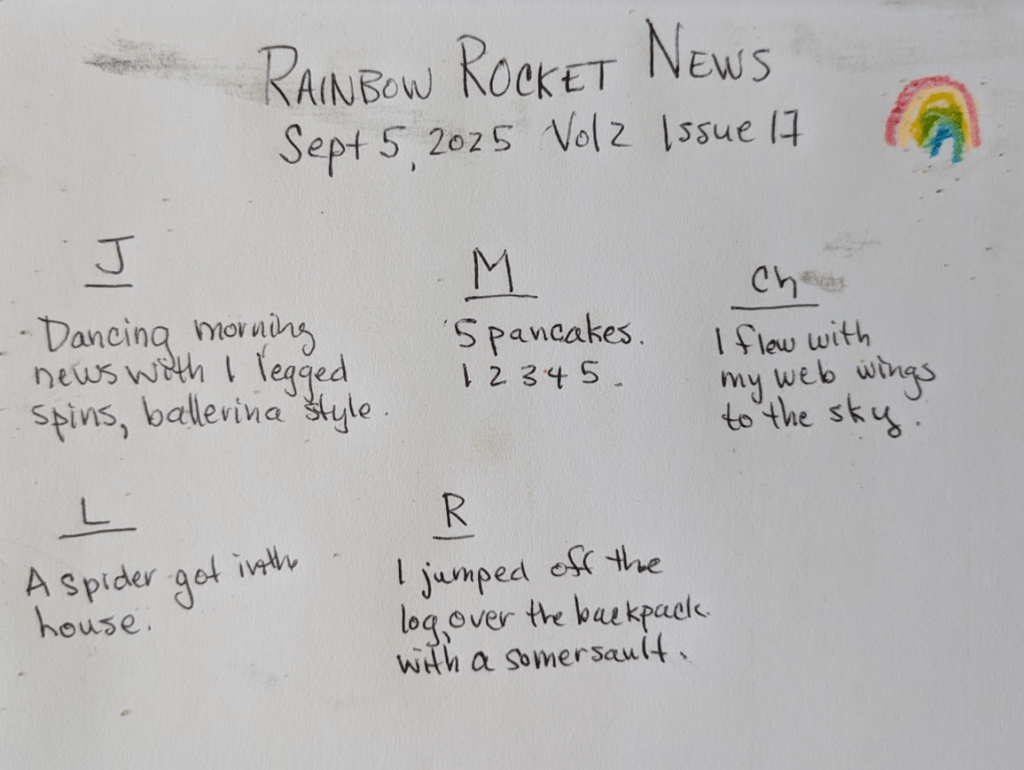 RAINBOW ROCKET NEWS
Sept 5, 2025 Vol 2 Issue 17
J
Dancing morning
news with 1 legged
spins, ballerina style.
M
5 pancakes.
1 2 3 4 5.
Ch
I flew with
my web wings
to the sky.
L
A spider got in the
house.
R
I jumped off the
log, over the backpack
with a somersault.